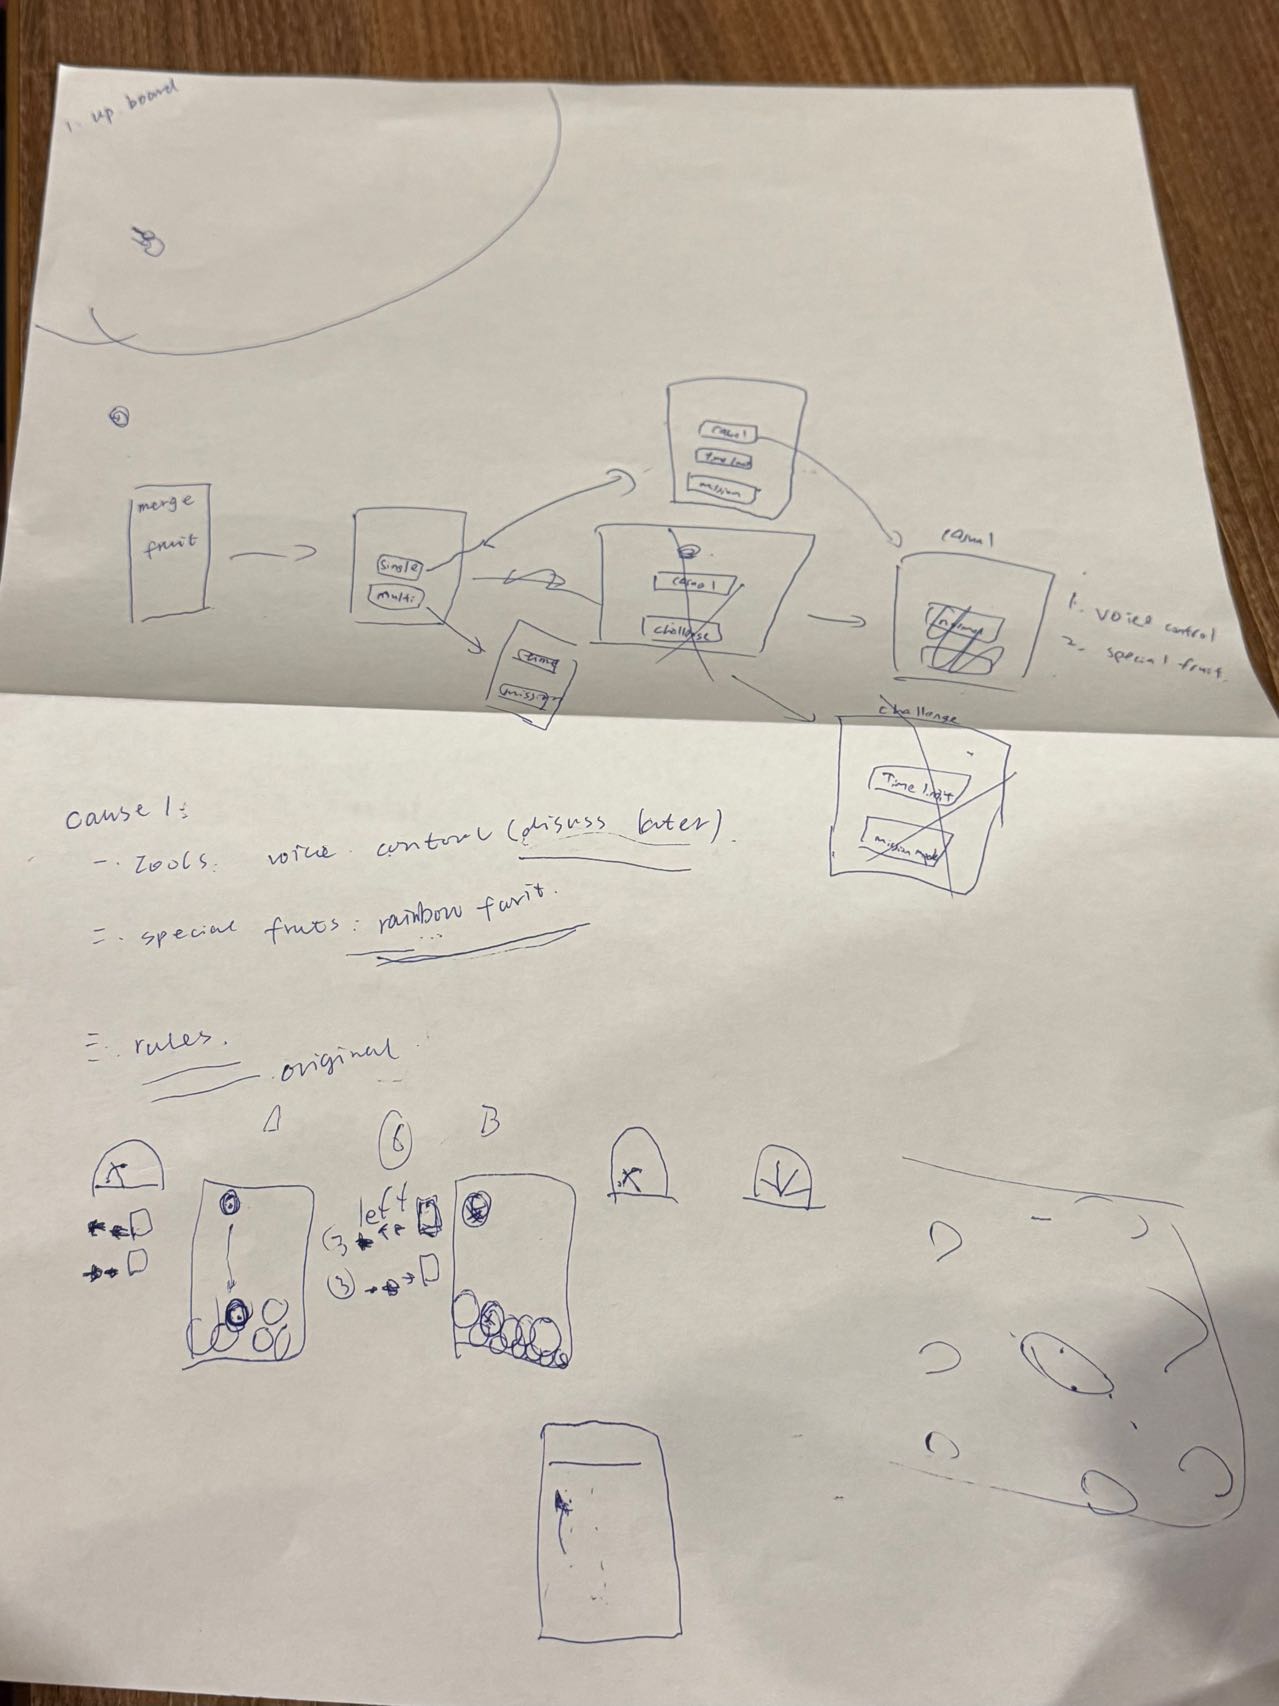 1. up board
merge
fruit
single
multi
casual
Time limit
mission
casual
challenge
time
mission
casual
1. voice control
2. special fruit.
challenge
Time limit
mission mode
cause 1:
一. tools: voice control (disuss later).
二. special fruts: rainbow furit.
三. rules.
original
A
6
B
left
3
3